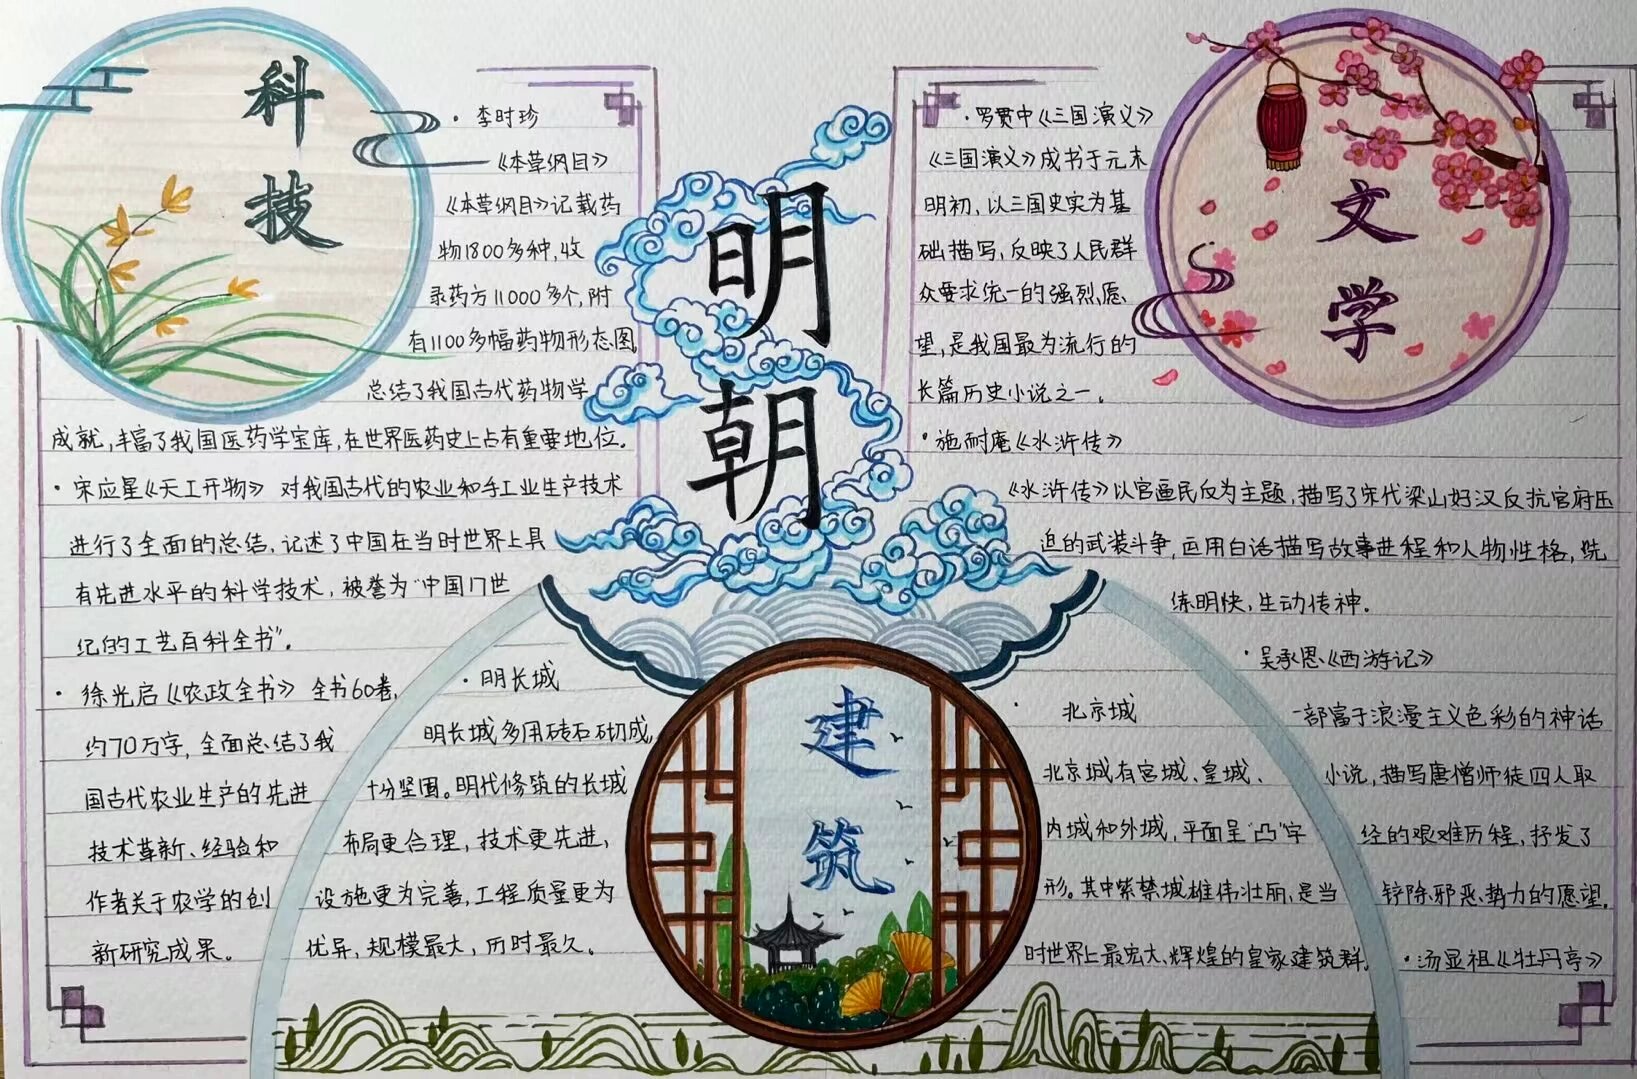 明朝
科技
·李时珍
《本草纲目》
《本草纲目》记载药
物1800多种,收
录药方11000多个,附
有1100多幅药物形态图,
总结了我国古代药物学
成就,丰富了我国医药学宝库,在世界医药史上占有重要地位.
·宋应星《天工开物》 对我国古代的农业和手工业生产技术
进行了全面的总结,记述了中国在当时世界上具
有先进水平的科学技术,被誉为"中国17世
纪的工艺百科全书".
·徐光启《农政全书》 全书60卷,
约70万字,全面总结了我
国古代农业生产的先进
技术革新、经验和
作者关于农学的创
新研究成果。
建筑
·明长城
明长城多用砖石砌成,
十分坚固。明代修筑的长城
布局更合理,技术更先进,
设施更为完善,工程质量更为
优异,规模最大,历时最久。
·北京城
北京城有宫城、皇城、
内城和外城,平面呈"凸"字
形。其中紫禁城雄伟壮丽,是当
时世界上最宏大、辉煌的皇家建筑群.
文学
·罗贯中《三国演义》
《三国演义》成书于元末
明初,以三国史实为基
础描写,反映了人民群
众要求统一的强烈愿
望,是我国最为流行的
长篇历史小说之一.
·施耐庵《水浒传》
《水浒传》以官逼民反为主题,描写了宋代梁山好汉反抗官府压
迫的武装斗争,运用白话描写故事进程和人物性格,洗
练明快,生动传神.
·吴承恩《西游记》
一部富于浪漫主义色彩的神话
小说,描写唐僧师徒四人取
经的艰难历程,抒发了
铲除邪恶势力的愿望.
·汤显祖《牡丹亭》